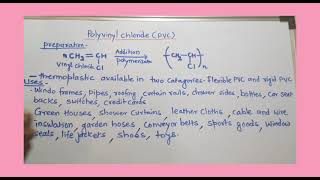 Polyvinyl chloride (PVC)
Preparation-
nCH2=CH Addition (CH2-CH)n
vinyl Cl polymerizati Cl
-thermoplastic available in two categories- flexible PVC and rigid PVC
Uses-
- Windo frames, Pipes, roofing, curtain rails, drawer sides, bottles, Car seat
backs, switches, credit cards
Green Houses, shower Curtains leather Cloths, cable and wire
insulation, garden hoses conveyor belts, sports goods, window
seals, life jackets, shoes, toys.